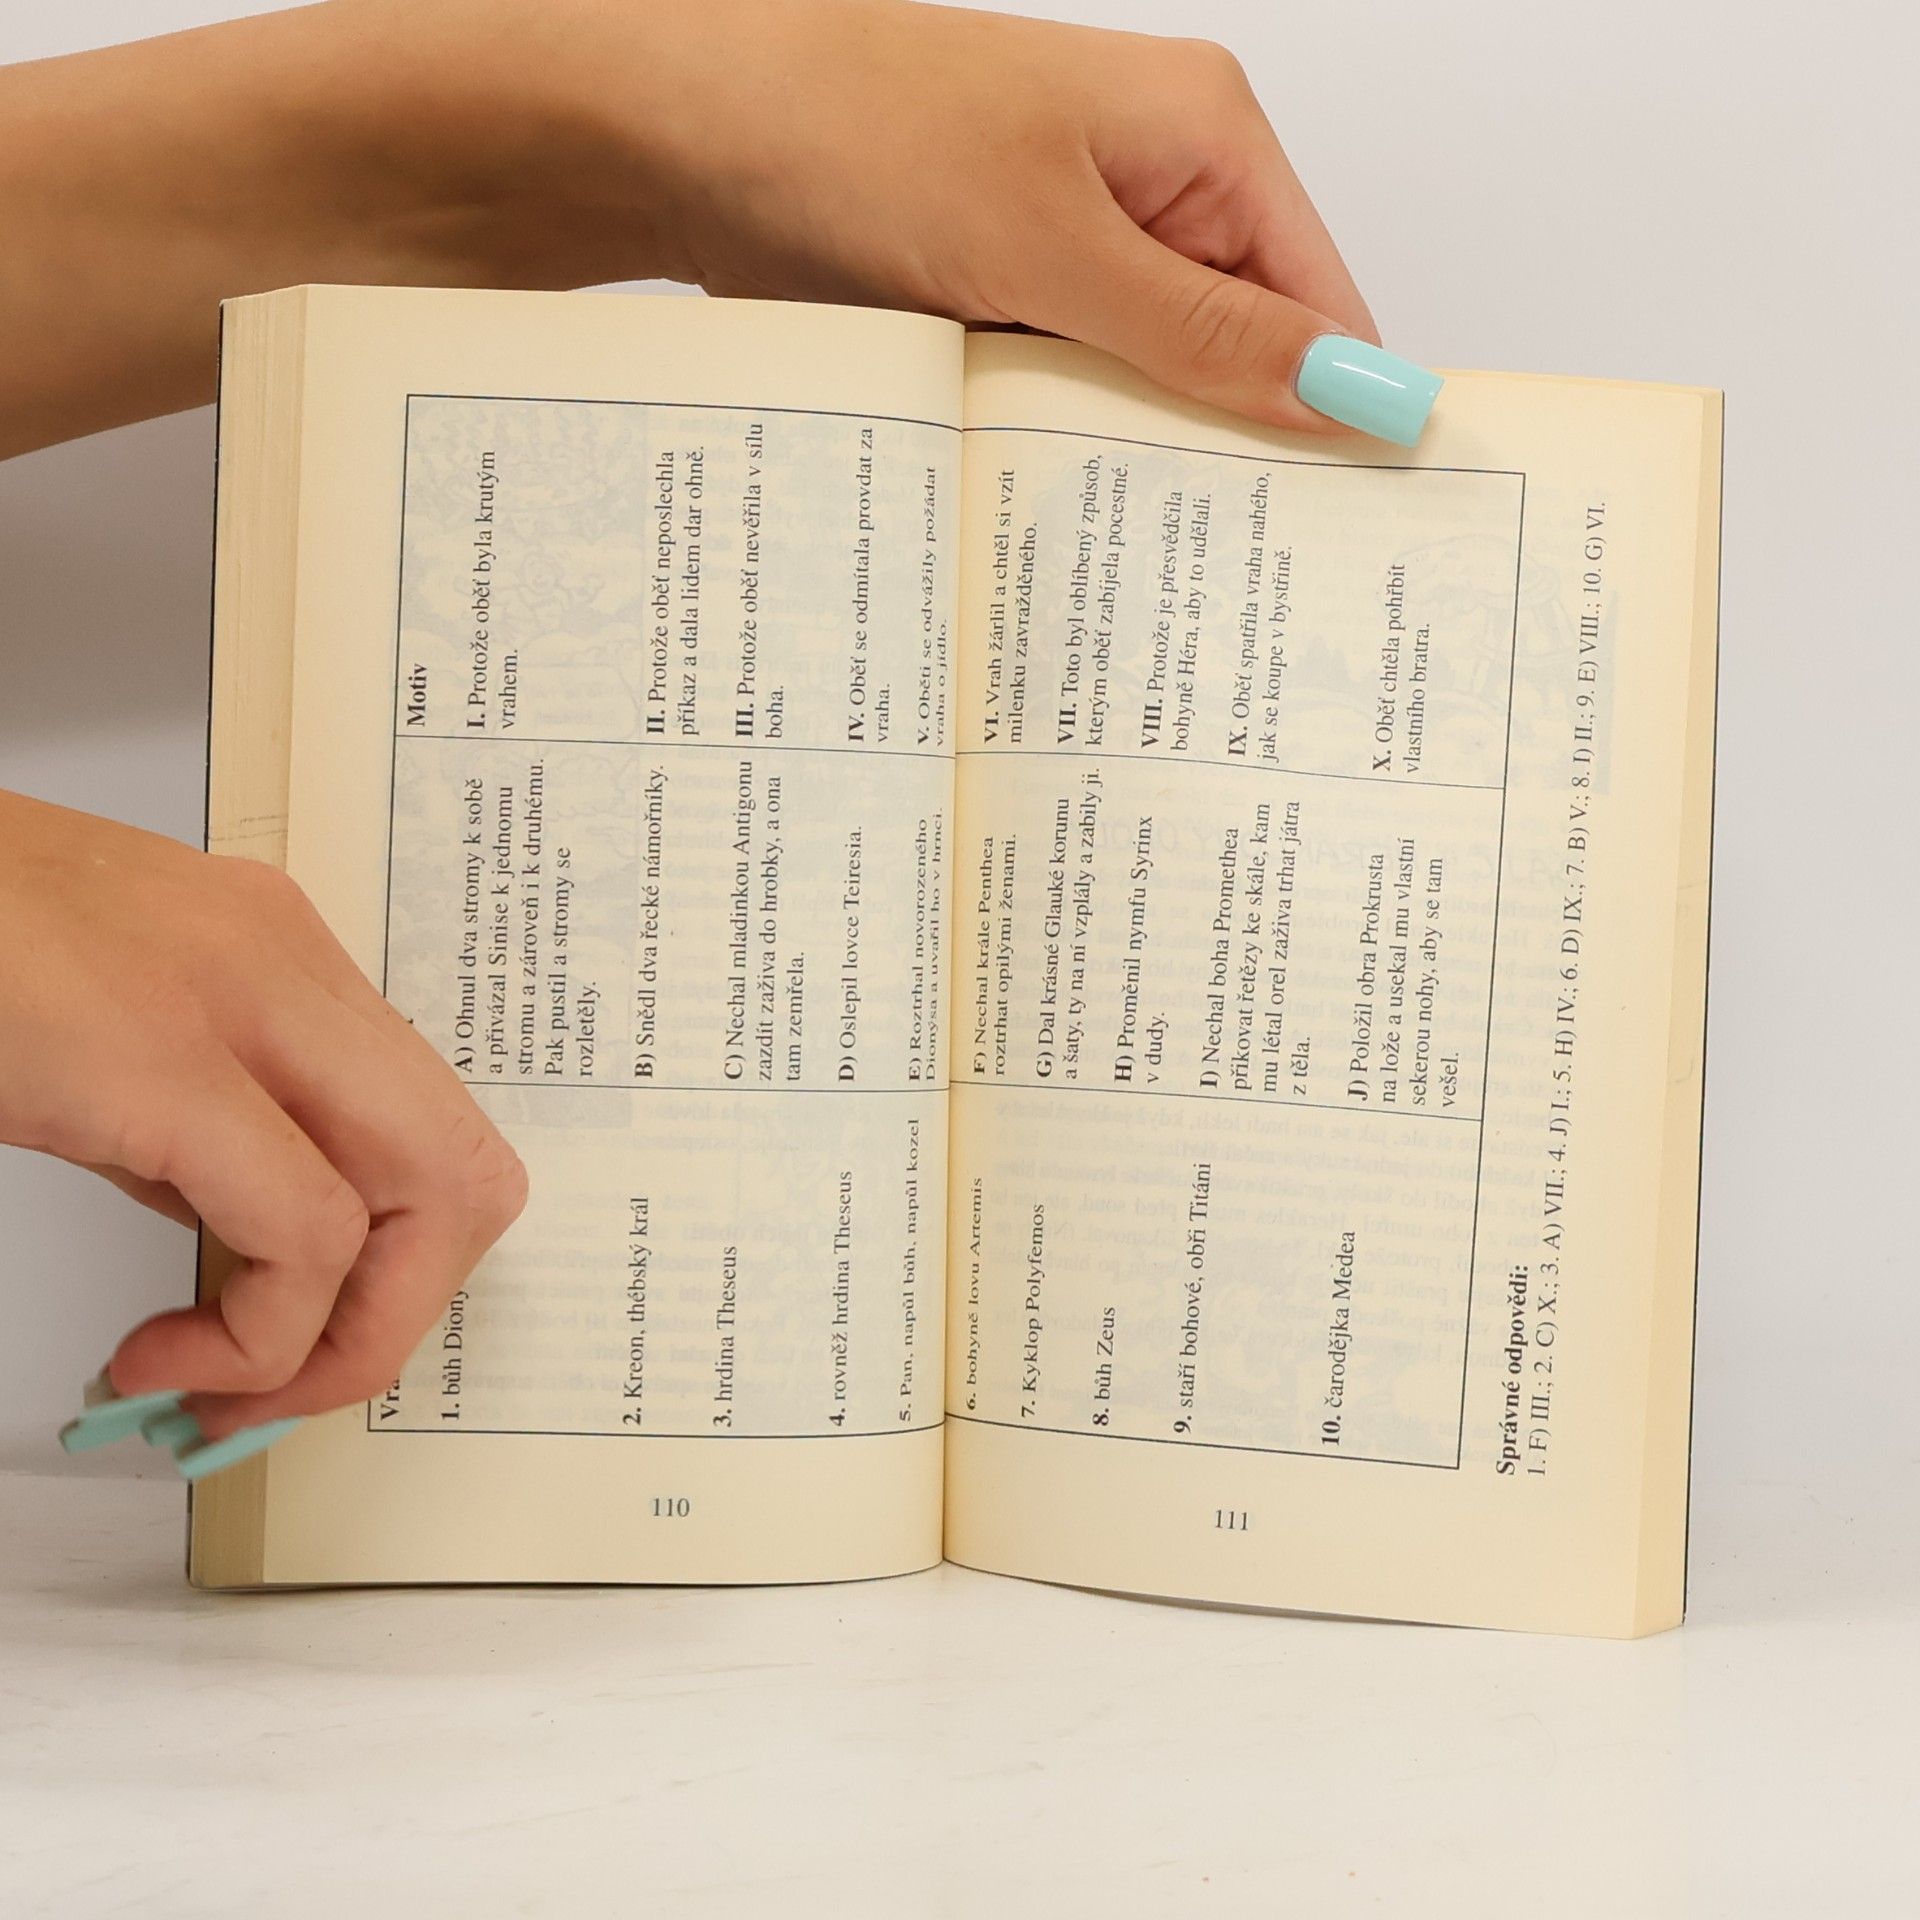 Vra
1. bůh Diony
2. Kreon, thébský král
3. hrdina Theseus
4. rovněž hrdina Theseus
5. Pan, napůl bůh, napůl kozel
6. bohyně lovu Artemis
7. Kyklop Polyfemos
8. bůh Zeus
9. staří bohové, obři Titáni
10. čarodějka Médea
A) Ohnul dva stromy k sobě
a přivázal Sinise k jednomu
stromu a zároveň i k druhému.
Pak pustil a stromy se
rozletěly.
B) Snědl dva řecké námořníky.
C) Nechal mladinkou Antigonu
zazdít zaživa do hrobky, a ona
tam zemřela.
D) Oslepil lovce Teiresia.
E) Roztrhal novorozeného
Dionýsa a uvařil ho v hrnci.
F) Nechal krále Penthea
roztrhat opilými ženami.
G) Dal krásné Glauké korunu
a šaty, ty na ní vzplály a zabily ji.
H) Proměnil nymfu Syrinx
v dudy.
I) Nechal boha Promethea
přikovat řetězy ke skále, kam
mu létal orel zaživa trhat játra
z těla.
J) Položil obra Prokrusta
na lože a usekal mu vlastní
sekerou nohy, aby se tam
vešel.
Motiv
I. Protože oběť byla krutým
vrahem.
II. Protože oběť neposlechla
příkaz a dala lidem dar ohně.
III. Protože oběť nevěřila v sílu
boha.
IV. Oběť se odmítala provdat za
vraha.
V. Oběti se odvážily požádat
vraha o jídlo.
VI. Vrah žárlil a chtěl si vzít
milenku zavražděného.
VII. Toto byl oblíbený způsob,
kterým oběť zabíjela pocestné.
VIII. Protože je přesvědčila
bohyně Héra, aby to udělali.
IX. Oběť spatřila vraha nahého,
jak se koupe v bystřině.
X. Oběť chtěla pohřbít
vlastního bratra.
Správné odpovědi:
1. F) III.; 2. C) X.; 3. A) VII.; 4. J) I.; 5. H) IV.; 6. D) IX.; 7. B) V.; 8. I) II.; 9. E) VIII.; 10. G) VI.
110
111